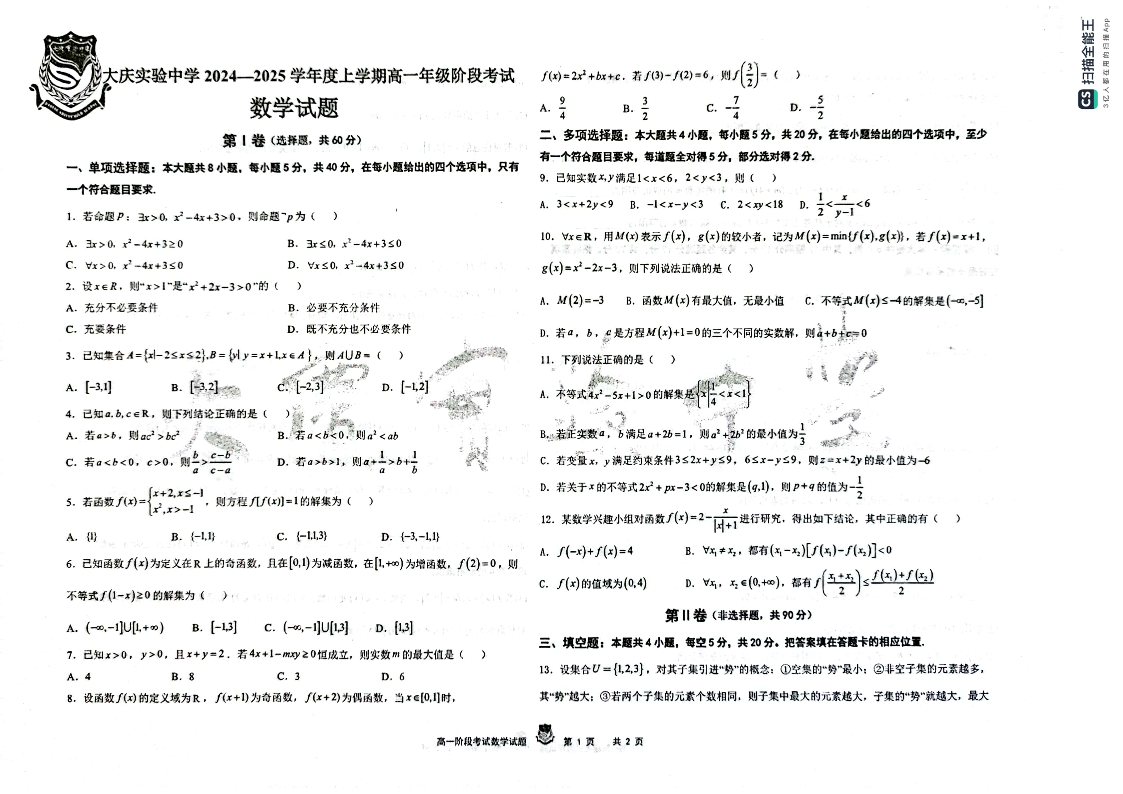 大庆实验中学 2024—2025 学年度上学期高一年级阶段考试
数学试题
第Ⅰ卷（选择题，共 60 分）
一、单项选择题：本大题共 8 小题，每小题 5 分，共 40 分，在每小题给出的四个选项中，只有
一个符合题目要求.
1．若命题 P：∃x>0，x²−4x+3>0，则命题¬p为（ ）
A．∃x>0，x²−4x+3≥0 B．∃x≤0，x²−4x+3≤0
C．∀x>0，x²−4x+3≤0 D．∀x≤0，x²−4x+3≤0
2．设x∈R，则“x>1”是“x²+2x−3>0”的（ ）
A．充分不必要条件 B．必要不充分条件
C．充要条件 D．既不充分也不必要条件
3．已知集合 A={x|−2≤x≤2},B={y| y=x+1,x∈A}，则 A∪B=（ ）
A．[−3,1] B．[−3,2] C．[−2,3] D．[−1,2]
4．已知a,b,c∈R，则下列结论正确的是（ ）
A．若a>b，则ac²>bc² B．若a<b<0，则a²<ab
C．若a<b<0，c>0，则b/a>(c−b)/(c−a) D．若a>b>1，则a+1/a>b+1/b
5．若函数f(x)={x+2,x≤−1 x²,x>−1，则方程f[f(x)]=1的解集为（ ）
A．{1} B．{−1,1} C．{−1,1,3} D．{−3,−1,1}
6．已知函数f(x)为定义在R上的奇函数，且在[0,1)为减函数，在[1,+∞)为增函数，f(2)=0，则
不等式f(1−x)≥0的解集为（ ）
A．(−∞,−1]∪[1,+∞) B．[−1,3] C．(−∞,−1]∪[1,3] D．[1,3]
7．已知x>0，y>0，且x+y=2．若4x+1−mxy≥0恒成立，则实数m的最大值是（ ）
A．4 B．8 C．3 D．6
8．设函数f(x)的定义域为R，f(x+1)为奇函数，f(x+2)为偶函数，当x∈[0,1]时，
f(x)=2x²+bx+c．若f(3)−f(2)=6，则f(3/2)=（ ）
A．9/4 B．3/2 C．−7/4 D．−5/2
二、多项选择题：本大题共 4 小题，每小题 5 分，共 20 分，在每小题给出的四个选项中，至少
有一个符合题目要求，每道题全对得 5 分，部分选对得 2 分.
9．已知实数x,y满足1<x<6，2<y<3，则（ ）
A．3<x+2y<9 B．−1<x−y<3 C．2<xy<18 D．1/2<x/(y−1)<6
10．∀x∈R，用M(x)表示f(x)，g(x)的较小者，记为M(x)=min{f(x),g(x)}，若f(x)=x+1，
g(x)=x²−2x−3，则下列说法正确的是（ ）
A．M(2)=−3 B．函数M(x)有最大值，无最小值 C．不等式M(x)≤−4的解集是(−∞,−5]
D．若a，b，c是方程M(x)+1=0的三个不同的实数解，则a+b+c=0
11．下列说法正确的是（ ）
A．不等式4x²−5x+1>0的解集是{x|1/4<x<1}
B．若正实数a，b满足a+2b=1，则a²+2b²的最小值为1/3
C．若变量x，y满足约束条件3≤2x+y≤9，6≤x−y≤9，则z=x+2y的最小值为−6
D．若关于x的不等式2x²+px−3<0的解集是(q,1)，则p+q的值为−1/2
12．某数学兴趣小组对函数f(x)=2−x/(|x|+1)进行研究，得出如下结论，其中正确的有（ ）
A．f(−x)+f(x)=4 B．∀x₁≠x₂，都有(x₁−x₂)[f(x₁)−f(x₂)]<0
C．f(x)的值域为(0,4) D．∀x₁，x₂∈(0,+∞)，都有f((x₁+x₂)/2)≤(f(x₁)+f(x₂))/2
第Ⅱ卷（非选择题，共 90 分）
三、填空题：本题共 4 小题，每空 5 分，共 20 分。把答案填在答题卡的相应位置.
13．设集合U={1,2,3}，对其子集引进“势”的概念：①空集的“势”最小；②非空子集的元素越多，
其“势”越大；③若两个子集的元素个数相同，则子集中最大的元素越大，子集的“势”就越大，最大
高一阶段考试数学试题 第 1 页 共 2 页
CS 扫描全能王
3亿人都在用的扫描App